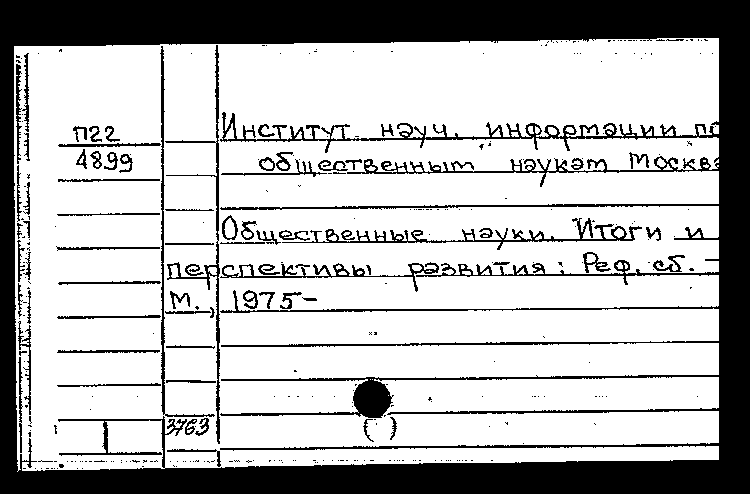 П22
4899
Институт науч. информации по
общественным наукам Москва
Общественные науки. Итоги и
перспективы развития: Реф. сб. –
М., 1975–
3763
( )